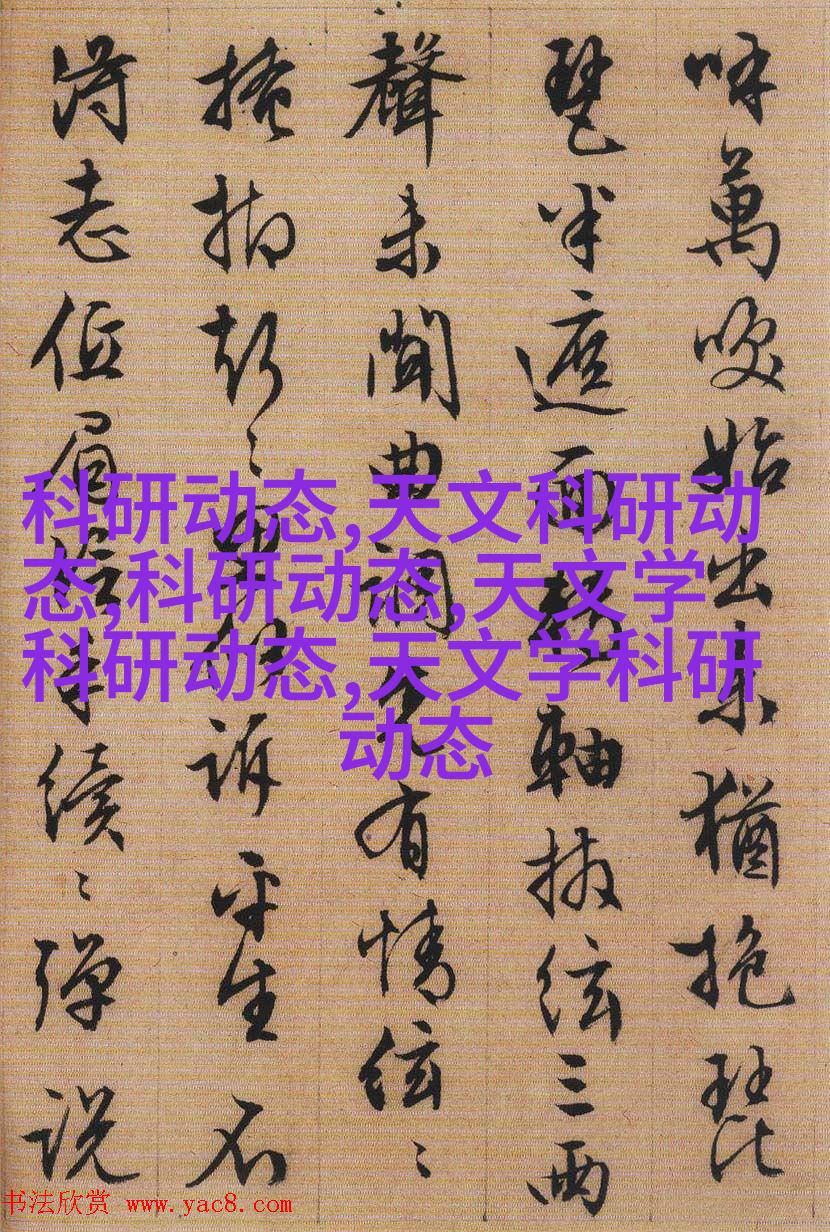 呼萬喚始出来猶抱琵
琶半遮面轉軸撥絃三兩
聲未聞曲調先有情絃〻
掩抑聲〻思似訴平生不
得志低眉信手續〻彈説
科研动态,天文科研动
态,科研动态,天文学
科研动态,天文学科研
动态
书法欣赏 www.yac8.com